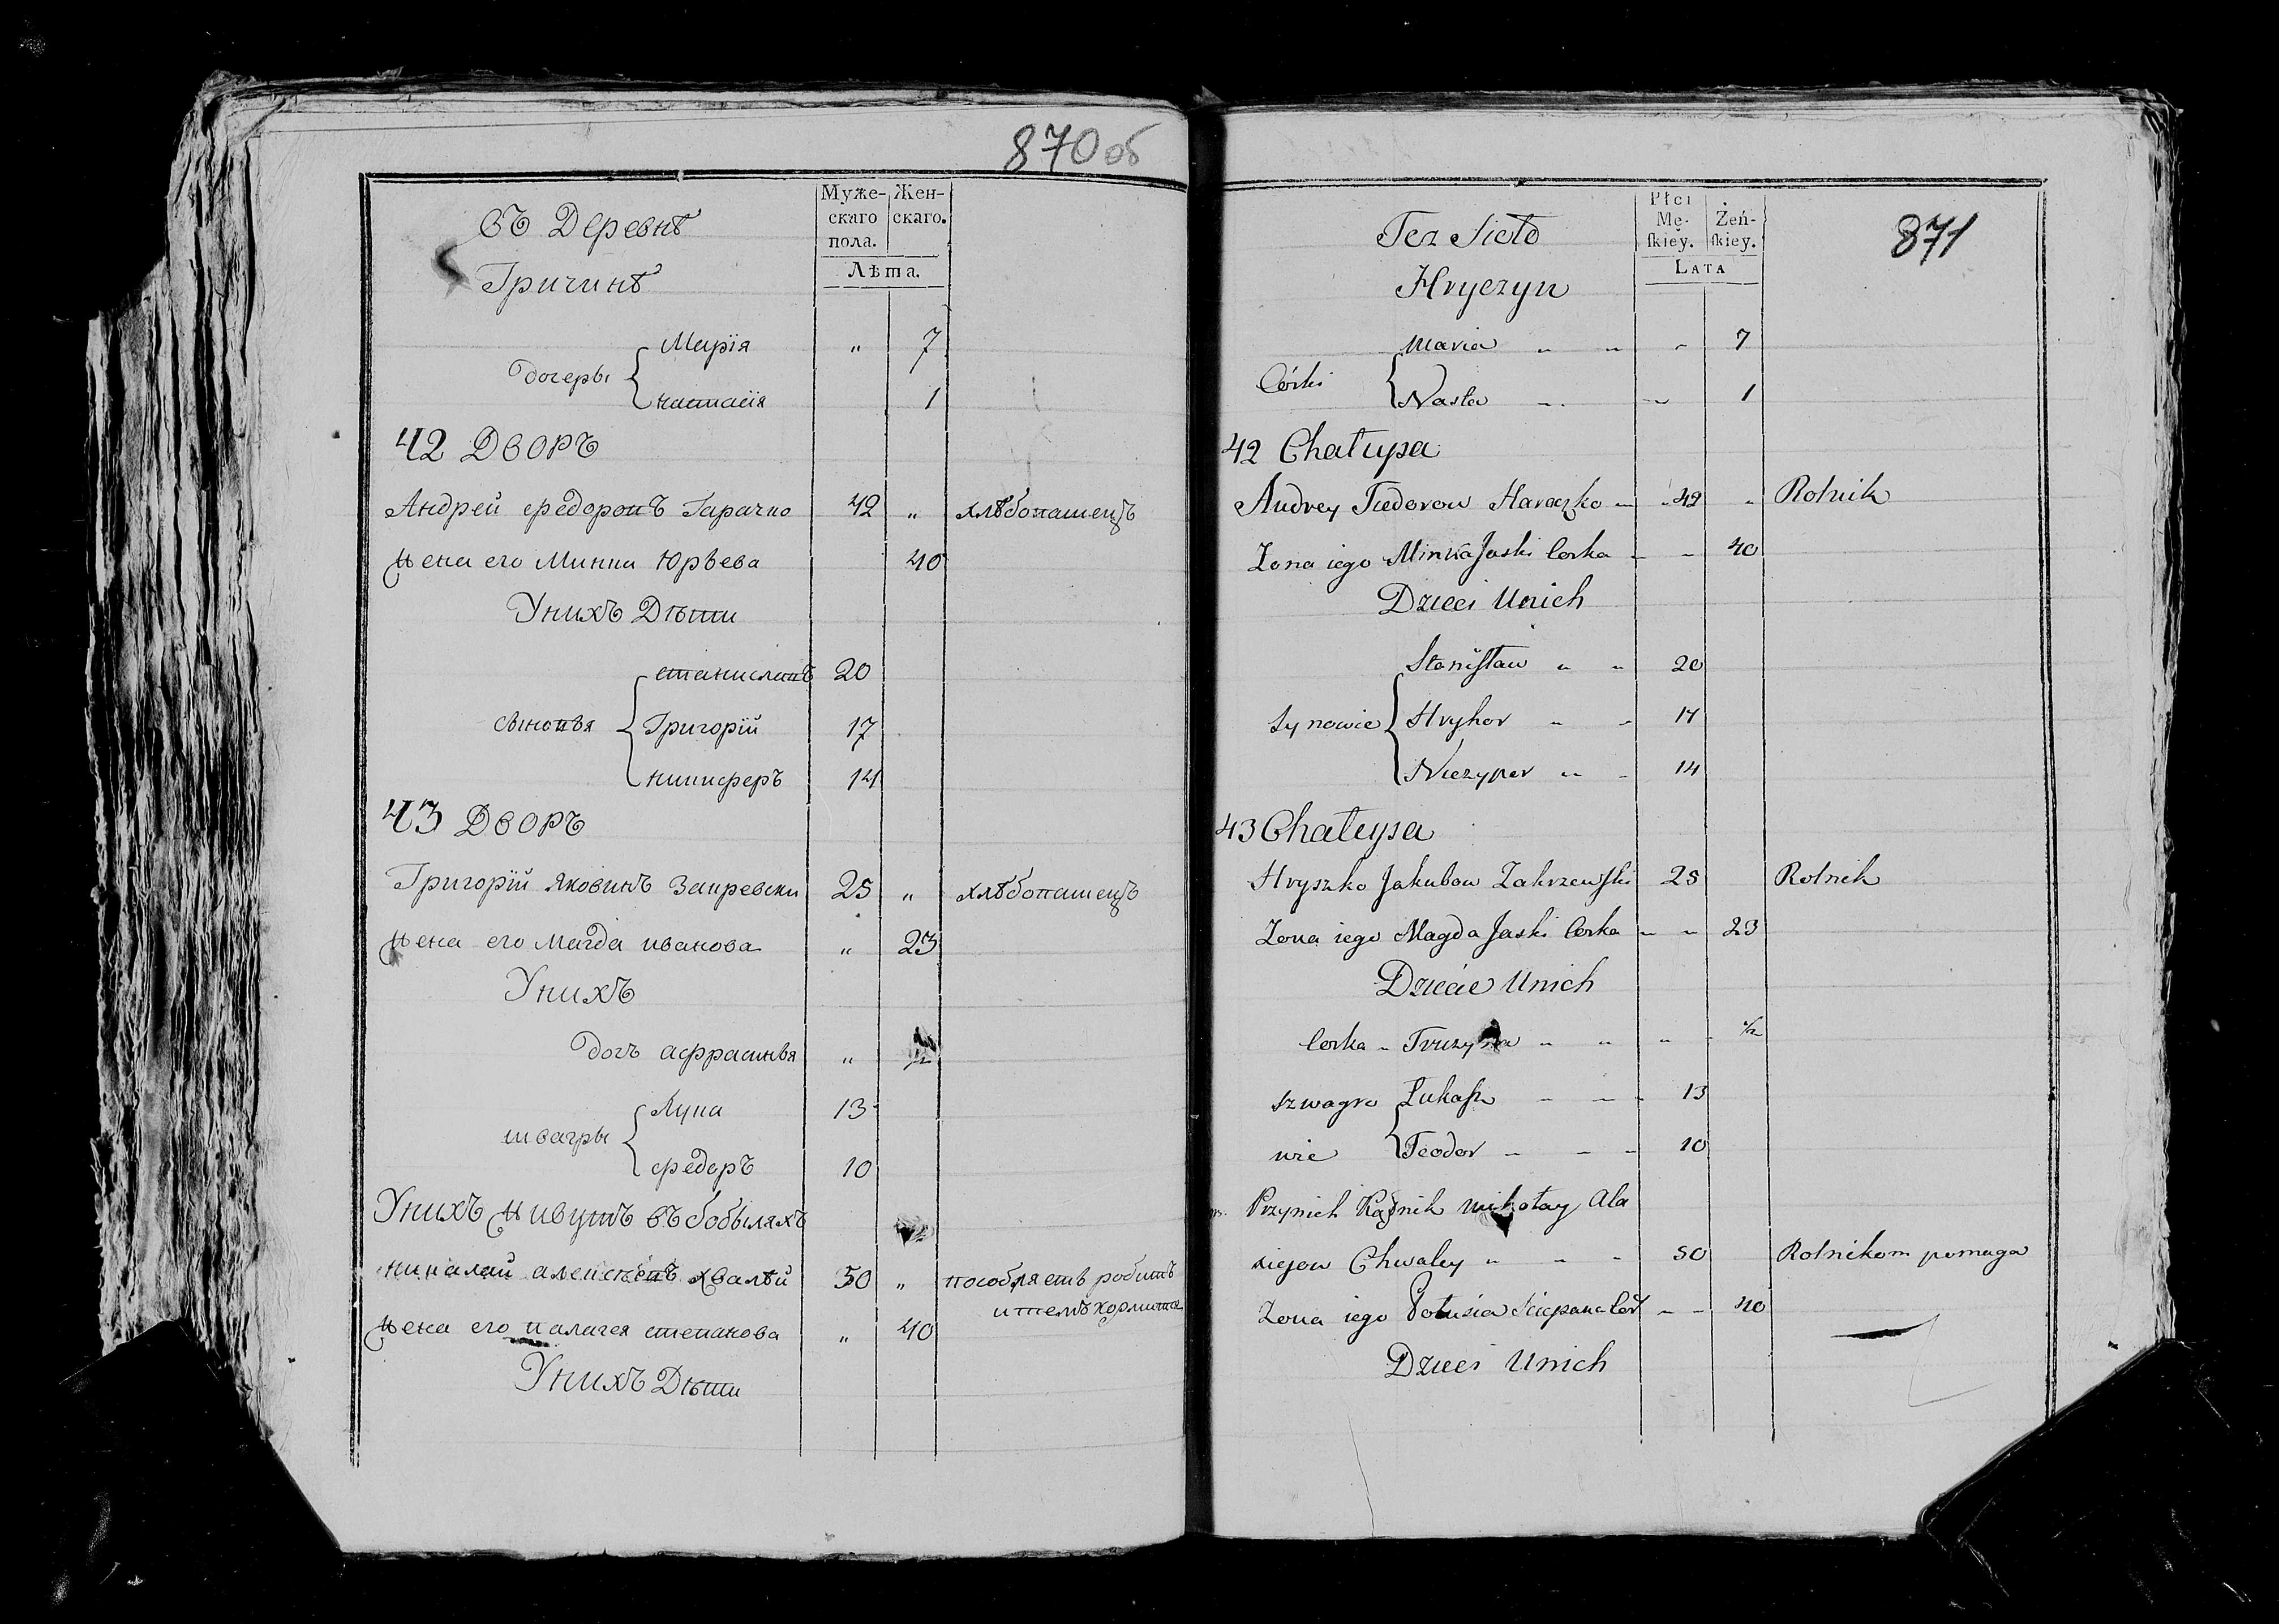 870 об
Муже-
скаго
пола.
Жен-
скаго.
Лѣта.
въ Деревнѣ
Гричинѣ
дочеры
Марїя " 7
настасїя 1
42 Дворъ
Андрей федоровъ Гарачко 42 " хлѣбопашецъ
жена его Минка Юрьева 40
Унихъ Дѣти
станиславъ 20
сыновья Григорїй 17
ничиферъ 14
43 Дворъ
Григорїй яковивъ Закревски 25 " хлѣбопашецъ
жена его магда иванова " 23
Унихъ
дочъ афрасинья " ½
швагры
Лука 13
федоръ 10
Унихъ живутъ въ бобыляхъ
николай алексѣевъ хвалѣй 50 " пособляетъ робитъ
и темъ кормитса
жена его палагея степанова " 40
Унихъ Дѣти
871
Płci
Mę-
ſkiey.
Żeń-
ſkiey.
Lata
Tez Sioło
Hryczyn
Córki
Maria " " " 7
Nasta 1
42 Chałupa
Andrey Fiedorow Haraczko 42 " Rolnik
Zona iego Minka Jaski Corka 40
Dzieci Unich
Staniſław " " 20
Synowie Hryhor " 17
Niczyper " 14
43 Chałupa
Hryszko Jakubow Zakrzewſki 25 Rolnik
Zona iego Magda Jaski Corka 23
Dziecie Unich
Corka Fruzyna " " " ½
szwagro Łukaſz 13
wie Teodor 10
Przynich Kątnik Mikołay Ala
xiejow Chwaley " 50 Rolnikom pomaga
Zona iego Połusia Sciepana Cor 40
Dzieci Unich